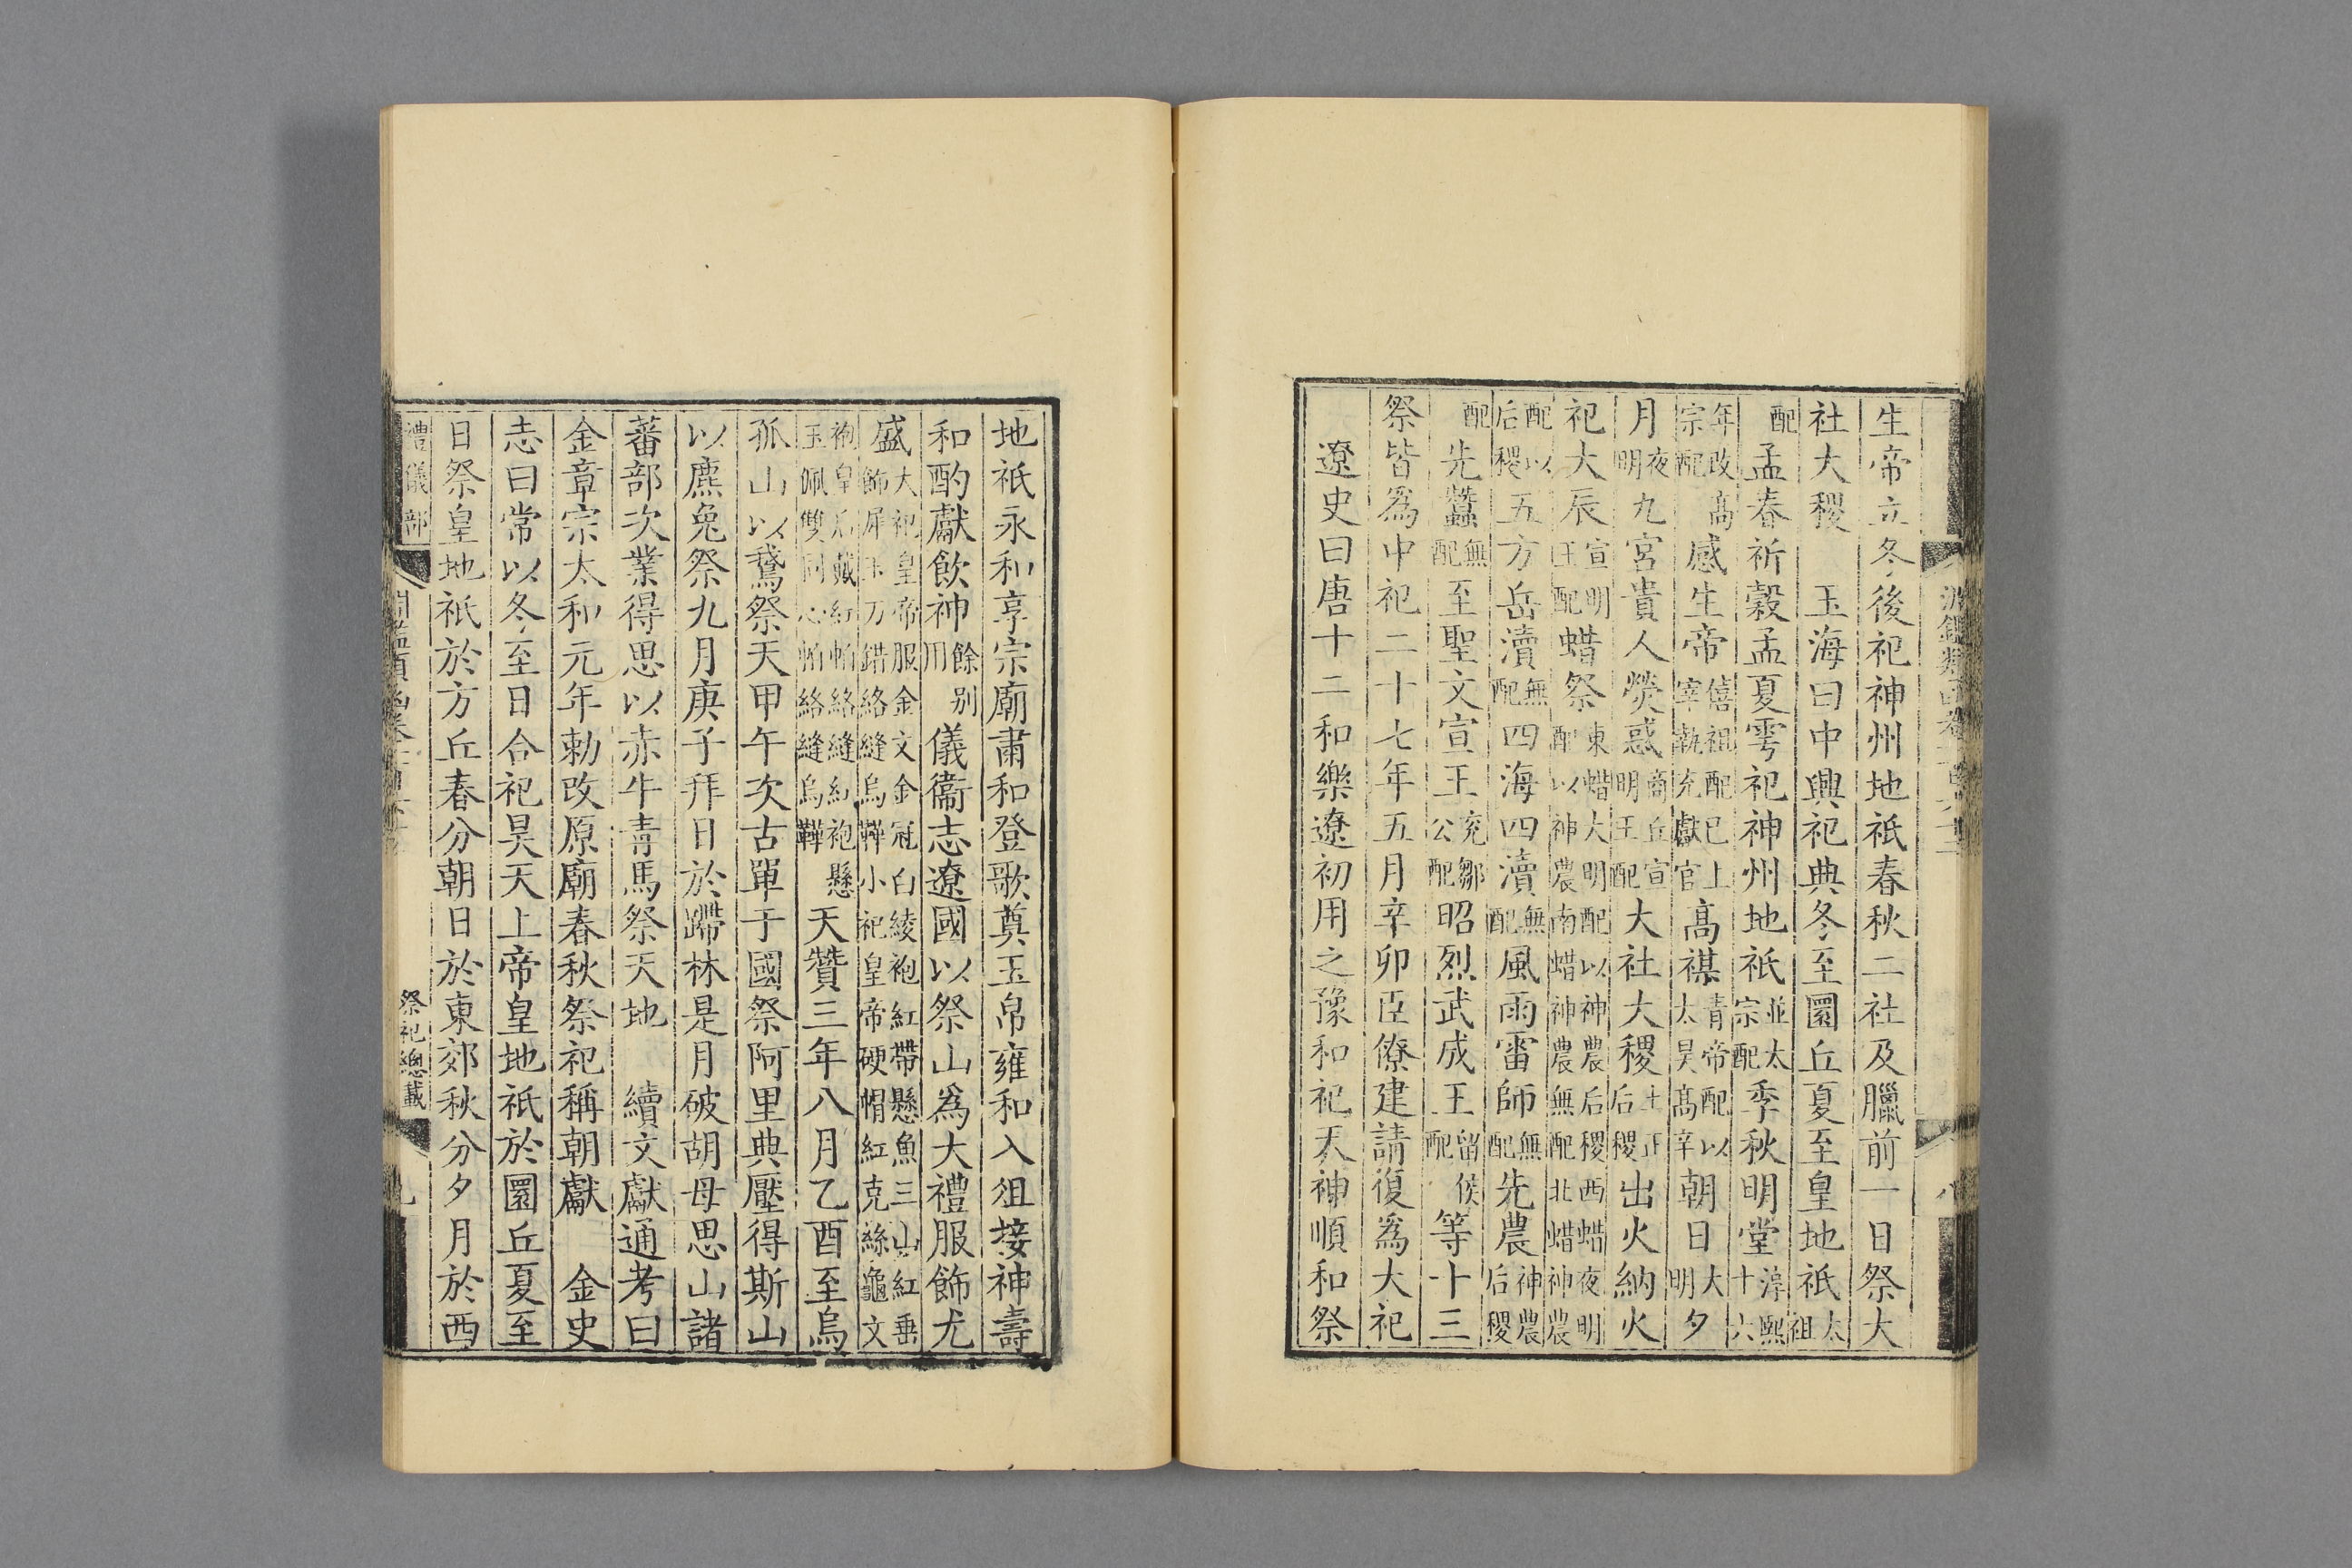 生帝立冬後祀神州地祇春秋二社及臘前一日祭大
社大稷　玉海曰中興祀典冬至圜丘夏至皇地祇太祖
配孟春祈穀孟夏雩祀神州地祇並太宗配季秋明堂淳熙十六
年改高宗配感生帝僖祖配已上宰執充獻官高禖青帝配以太昊高辛朝日大明夕
月夜明九宮貴人熒惑商丘宣明王配大社大稷土正后稷出火納火
祀大辰宣明王配蜡祭東蜡大明配以神農后稷西蜡夜明配以神農南蜡神農無配北蜡神農
配以后稷五方岳瀆無配四海四瀆無配風雨雷師無配先農神農后稷
配先蠶無配至聖文宣王兗鄒公配昭烈武成王留侯配等十三
祭皆爲中祀二十七年五月辛卯臣僚建請復爲大祀
遼史曰唐十二和樂遼初用之豫和祀天神順和祭
地祇永和享宗廟肅和登歌奠玉帛雍和入俎接神壽
和酌獻飲神餘別用儀衞志遼國以祭山爲大禮服飾尤
盛大祀皇帝服金文金冠白綾袍紅帶懸魚三山紅垂飾犀玉刀錯絡縫烏鞾小祀皇帝硬帽紅克絲龜文
袍皇后戴紅帕絡縫紅袍懸玉佩雙同心帕絡縫烏鞾天贊三年八月乙酉至烏
孤山以鵞祭天甲午次古單于國祭阿里典壓得斯山
以麃兔祭九月庚子拜日於蹛林是月破胡母思山諸
蕃部次業得思以赤牛青馬祭天地　續文獻通考曰
金章宗太和元年勅改原廟春秋祭祀稱朝獻　金史
志曰常以冬至日合祀昊天上帝皇地祇於圜丘夏至
日祭皇地祇於方丘春分朝日於東郊秋分夕月於西
禮儀部
祭祀總載